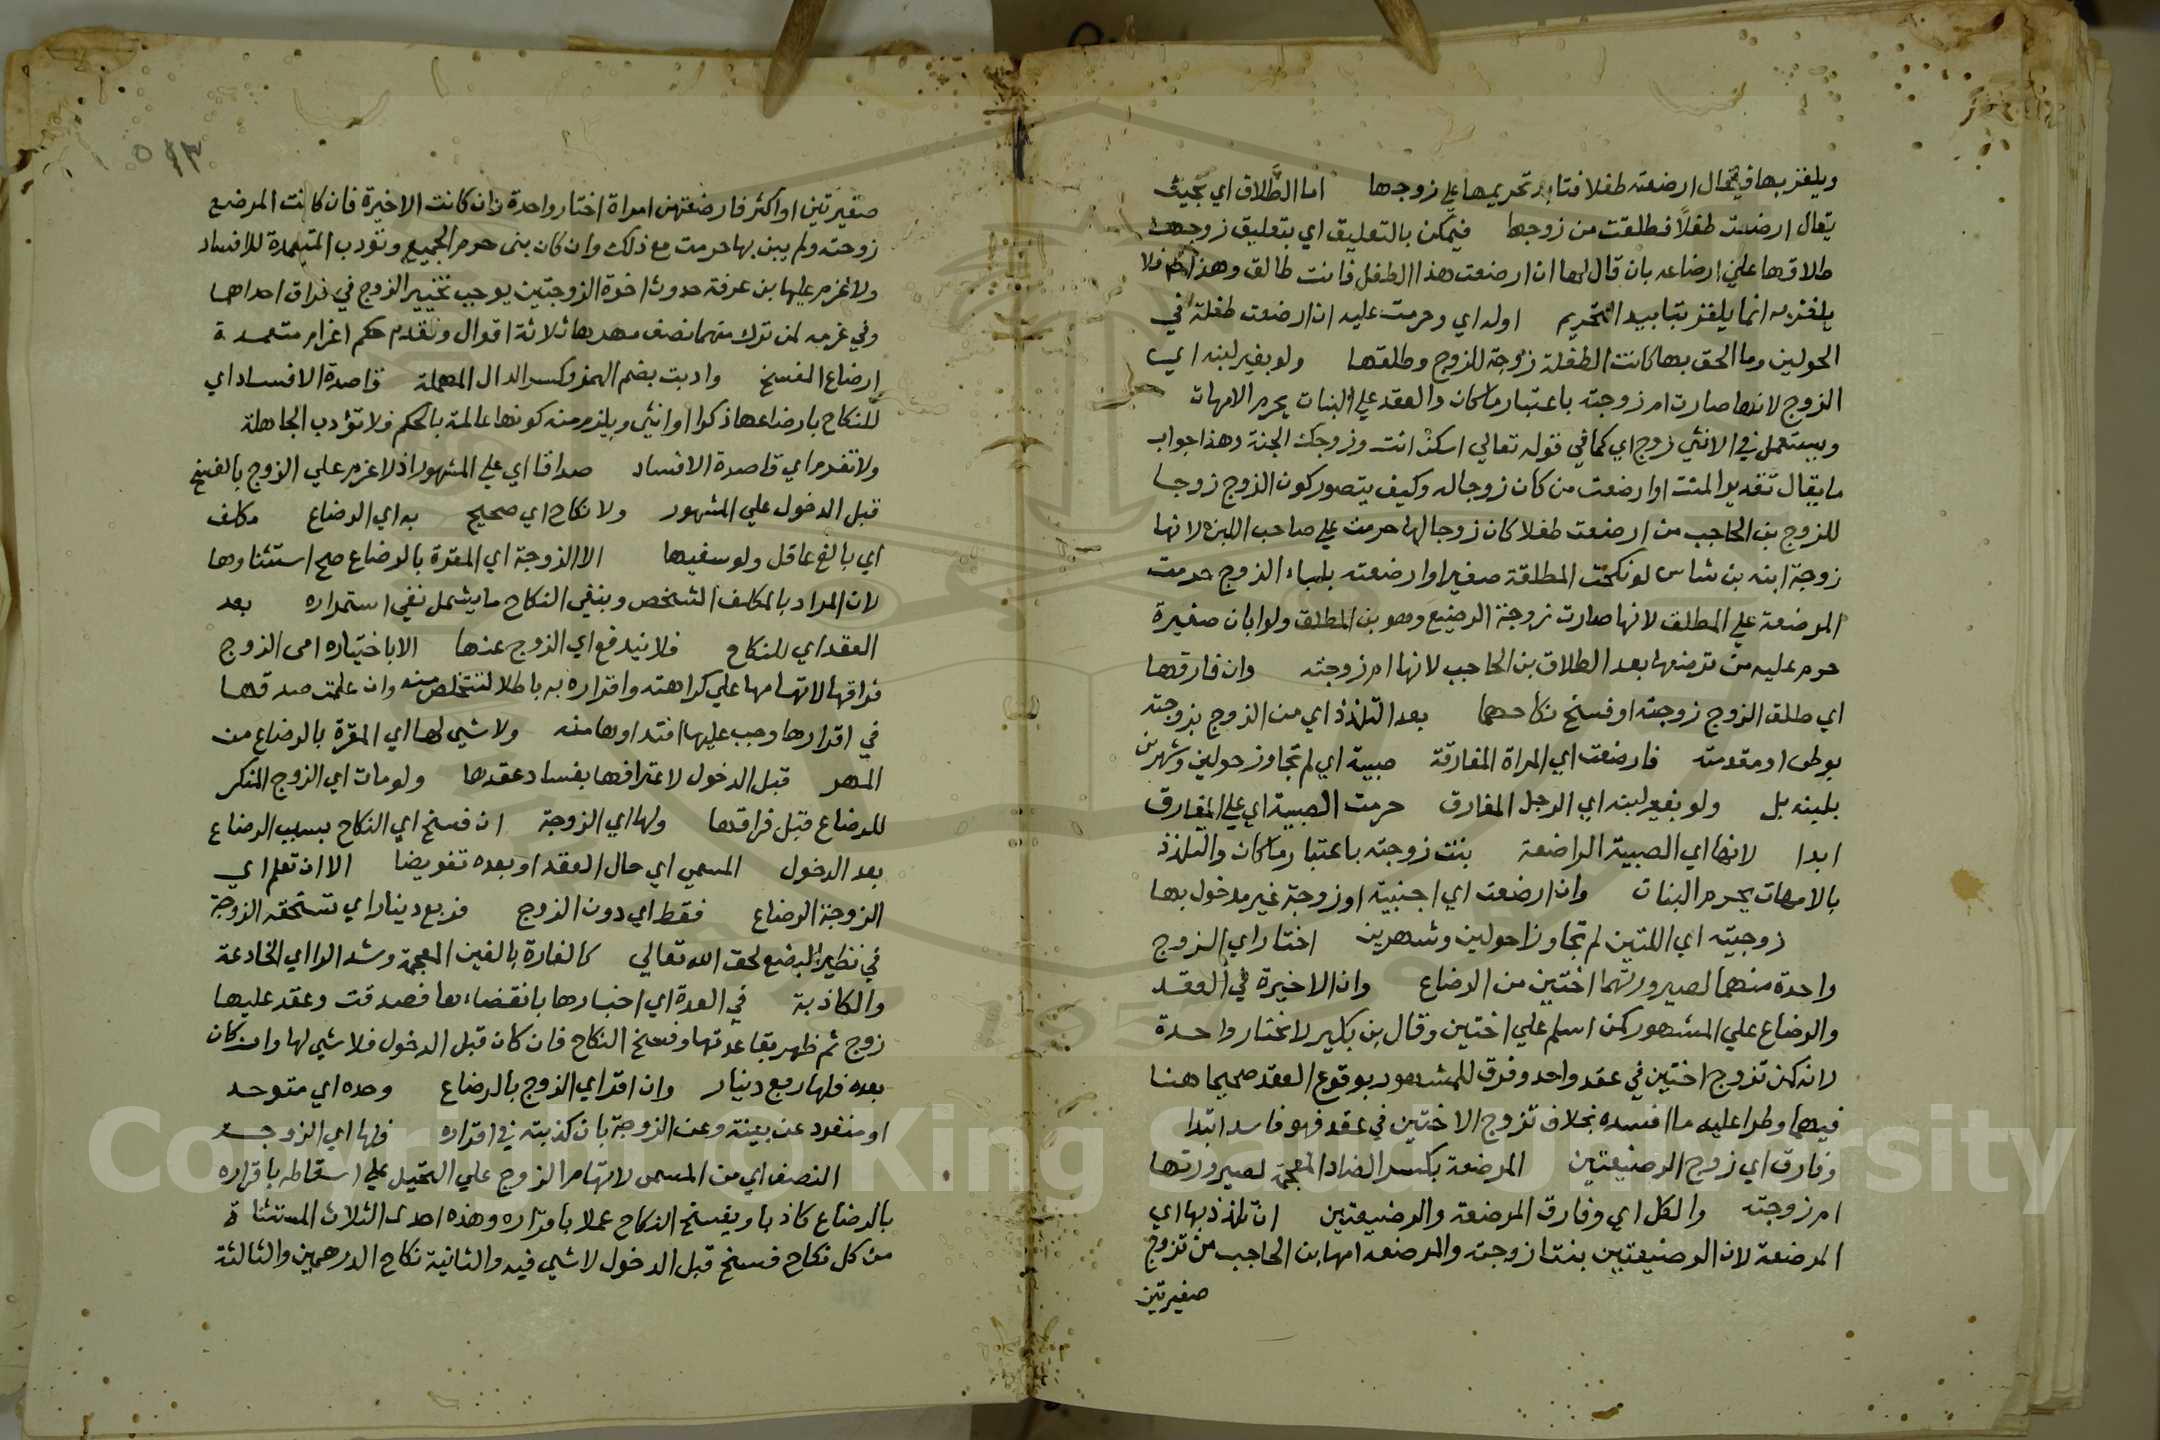 ويلغز بها فيقال ارضعته طفلا فتابد تحريمها علي زوجها اما الطلاق اي بحيث
يقال ارضعت طفلا فطلقت من زوجها فيمكن بالتعليق اي بتعليق زوجها
طلاقها علي ارضاعه بان قال لها ان ارضعت هذا الطفل فانت طالق وهذا فلا
يلغز به انما يلغز بتابيد التحريم اوله اي وحرمت عليه ان ارضعت طفلة في
الحولين وما الحق بها كانت الطفلة زوجة للزوج وطلقها ولو بغير لبنه اي
الزوج لانها صارت ام زوجته باعتبار ما كان والعقد علي البنات يحرم الامهات
ويستعمل في الانثي زوج اي كما في قوله تعالي اسكن انت وزوجك الجنة وهذا جواب
ما يقال تقدير المتن او ارضعت من كان زوجا له وكيف يتصور كون الزوج زوجا
للزوج بن الحاجب من ارضعت طفلا كان زوجا لها حرمت علي صاحب اللبن لانها
زوجة ابنه بن شاس لو نكحت المطلقة صغيرا وارضعته بلباء الزوج حرمت
المرضعة علي المطلق لانها صارت زوجة الرضيع وهو بن المطلق ولو ابان صغيرة
حرم عليه من ترضعها بعد الطلاق بن الحاجب لانها ام زوجته وان فارقها
اي طلق الزوج زوجته او فسخ نكاحهما بعد التلذذ اي من الزوج بزوجته
بوطي او مقدمته فارضعت اي المراة المفارقة صبية اي لم تجاوز حولين وشهرين
بلبنه بل ولو بغير لبنه اي الرجل المفارق حرمت الصبية اي علي المفارق
ابدا لانها اي الصبية الراضعة بنت زوجته باعتبار ما كان والتلذذ
بالامهات يحرم البنات وان ارضعت اي اجنبية او زوجة غير مدخول بها
زوجيته اي اللتين لم تجاوزا حولين وشهرين اختار اي الزوج
واحدة منهما لصيرورتهما اختين من الرضاع وان الاخيرة في العقد
والرضاع علي المشهور كمن اسلم علي اختين وقال بن بكير لا نختار واحدة
لانه كمن تزوج اختين في عقد واحد وفرق للمشهور بوقوع العقد صحيحا هنا
فيهما وطرا عليه ما افسده بخلاف تزوج الاختين في عقد فهو فاسد ابتدا
وفارق اي زوج الرضيعتين المرضعة بكسر الضاد المعجمة لصيرورتها
ام زوجته والكل اي وفارق المرضعة والرضيعتين ان تلذذ بها اي
المرضعة لان الرضيعتين بنتا زوجته والمرضعه امها بن الحاجب من تزوج
صغيرتين
صغيرتين او اكثر فارضعتهن امراة اختار واحدة وان كانت الاخيرة فان كانت المرضع
زوجته ولم يبن بها حرمت مع ذلك وان كان بنى حرم الجميع وتودب المتعمدة للافساد
ولا غرم عليها بن عرفة حدوث اخوة الزوجتين يوجب تخيير الزوج في فراق احداهما
وفي غرمه لمن ترك منهما نصف مهرها ثلاثة اقوال وتقدم حكم اغرام متعمدة
ارضاع المفسخ وادبت بضم الهمز وكسر الدال المهملة قاصدة الافساد اي
للنكاح بارضاعها ذكرا او انثي ويلزم منه كونها عالمة بالحكم فلا تؤدب الجاهلة
ولا تغرم اي قاصدة الافساد صداقا اي علي المشهور اذ لا غرم علي الزوج بالفسخ
قبل الدخول علي المشهور ولا نكاح اي صحيح به اي الرضاع مكلف
اي بالغ عاقل ولو سفيها الا الزوجة اي المقرة بالرضاع صح استثناوها
لان المراد بالمكلف الشخص وبنفي النكاح ما يشمل نفي استمراره بعد
العقد اي للنكاح فلا يندفع اي الزوج عنها الا باختياره امى الزوج
فراقها لاتهامها علي كراهته واقراره به باطلا لتتخلص منه وان علمت صدقها
في اقرارها وجب عليها افتداوها منه ولا شي لها اي المقرة بالرضاع من
المهر قبل الدخول لاعترافها بفساد عقدها ولو مات اي الزوج المنكر
للرضاع قبل فراقها ولها اي الزوجة ان فسخ اي النكاح بسبب الرضاع
بعد الدخول المسمي اي حال العقد او بعده تفويضا الا ان تعلم اي
الزوجة الرضاع فقط اي دون الزوج فربع دينار اي تستحقه الزوجة
في نظير البضع لحق الله تعالي كالغارة بالغين المعجمة وشد الرا اي الخادعة
والكاذبة في العدة اي اخبارها بانقضاءها فصدقت وعقد عليها
زوج ثم ظهر بقا عدتها وفسخ النكاح فان كان قبل الدخول فلا شي لها وان كان
بعده فلها ربع دينار وان اقر اي الزوج بالرضاع وحده اي متوحد
او منفرد عن بينة وعن الزوجة بان كذبته في اقراره فلها اي الزوجة
النصف اي من المسمى لاتهام الزوج علي التحيل علي اسقاطه باقراره
بالرضاع كاذبا ويفسخ النكاح عملا باقراره وهذه احدى الثلاث المستثناة
من كل نكاح فسخ قبل الدخول لا شي فيه والثانية نكاح الدرهمين والثالثة
Copyright © King Saud University
1957